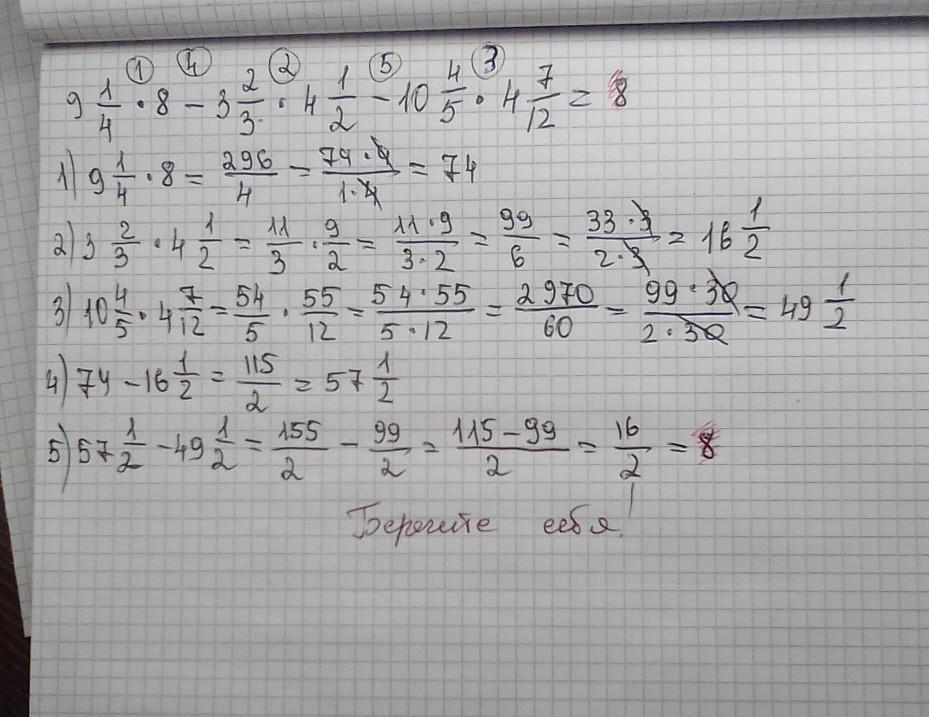 ① ④ ② ⑤ ③
9 1/4 · 8 − 3 2/3 · 4 1/2 − 10 4/5 · 4 7/12 = 8
1) 9 1/4 · 8 = 296/4 = 74·4/1·4 = 74
2) 3 2/3 · 4 1/2 = 11/3 · 9/2 = 11·9/3·2 = 99/6 = 33·3/2·3 = 16 1/2
3) 10 4/5 · 4 7/12 = 54/5 · 55/12 = 54·55/5·12 = 2970/60 = 99·30/2·30 = 49 1/2
4) 74 − 16 1/2 = 115/2 = 57 1/2
5) 57 1/2 − 49 1/2 = 155/2 − 99/2 = 115−99/2 = 16/2 = 8
Берегите себя!